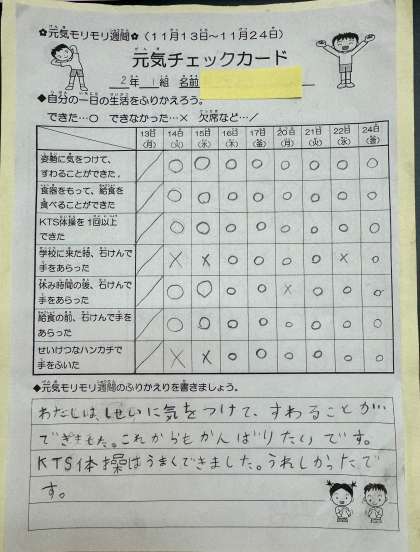 ✿元気モリモリ週間✿(11月13日～11月24日)
元気チェックカード
2年 1組 名前
◆自分の一日の生活をふりかえろう。
できた…○ できなかった…× 欠席など…／
13日(月) 14日(火) 15日(水) 16日(木) 17日(金) 20日(月) 21日(火) 22日(水) 24日(金)
姿勢に気をつけて、
すわることができた。 ／ ○ ○ ○ ○ ○ ○ ○ ○
食器をもって、給食を
食べることができた ／ ○ ○ ○ ○ ○ ○ ○ ○
KTS体操を1回以上
できた ／ ○ ○ ○ ○ ○ ○ ○ ○
学校に来た時、石けんで
手をあらった ／ × × ○ ○ ○ ○ × ○
休み時間の後、石けんで
手をあらった ／ ○ ○ ○ ○ × ○ ○ ○
給食の前、石けんで手を
あらった ／ ○ ○ ○ ○ ○ ○ ○ ○
せいけつなハンカチで
手をふいた ／ × × ○ ○ ○ ○ ○ ○
◆元気モリモリ週間のふりかえりを書きましょう。
わたしは、しせいに気をつけて、すわることが
できました。これからもがんばりたいです。
KTS体操はうまくできました。うれしかったで
す。